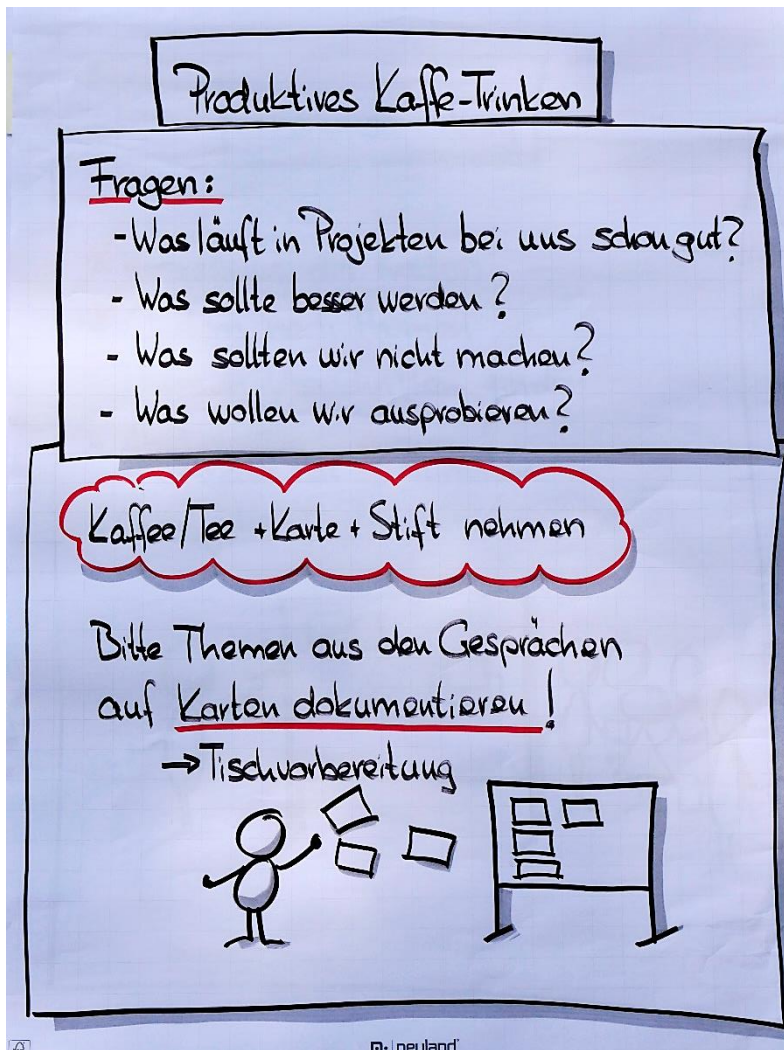 Produktives Kaffe-Trinken
Fragen:
- Was läuft in Projekten bei uns schon gut?
- Was sollte besser werden?
- Was sollten wir nicht machen?
- Was wollen wir ausprobieren?
Kaffee/Tee + Karte + Stift nehmen
Bitte Themen aus den Gesprächen
auf Karten dokumentieren!
→ Tischvorbereitung
neuland